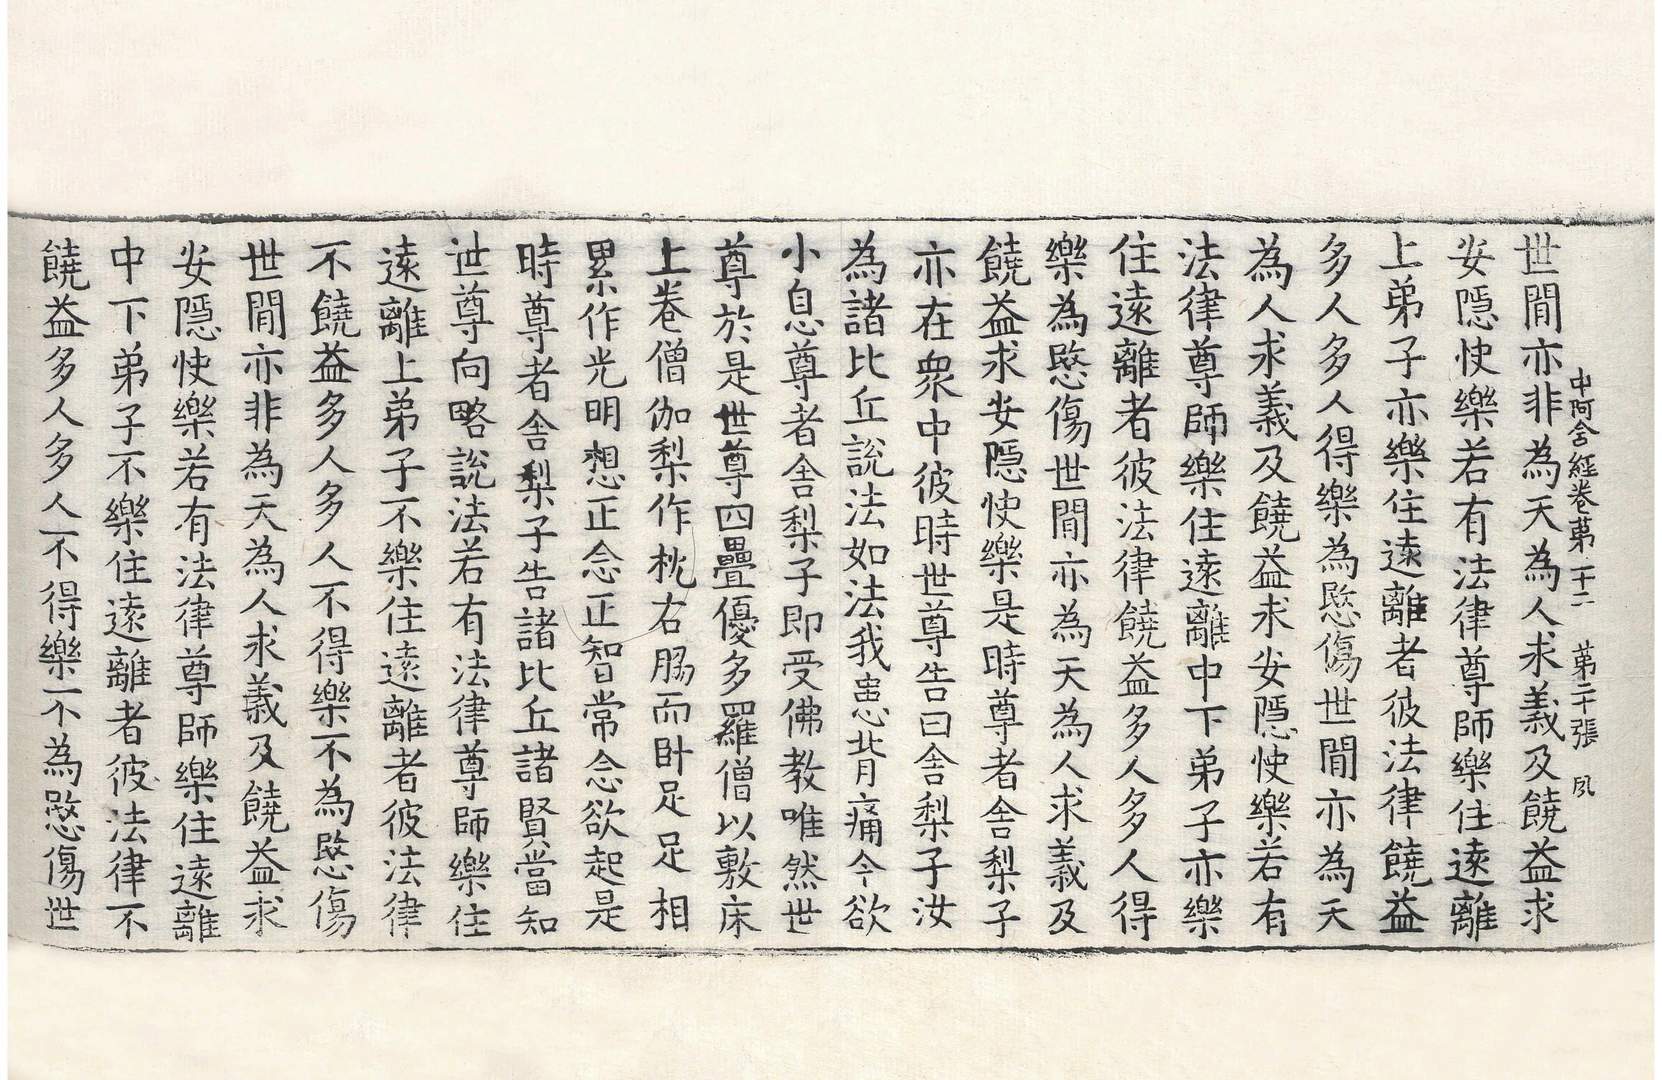 中阿含經卷第二十二　第二十張　夙
世間亦非為天為人求義及饒益求
安隱快樂若有法律尊師樂住遠離
上弟子亦樂住遠離者彼法律饒益
多人多人得樂為愍傷世間亦為天
為人求義及饒益求安隱快樂若有
法律尊師樂住遠離中下弟子亦樂
住遠離者彼法律饒益多人多人得
樂為愍傷世間亦為天為人求義及
饒益求安隱快樂是時尊者舍梨子
亦在眾中彼時世尊告曰舍梨子汝
為諸比丘說法如法我患背痛今欲
小息尊者舍梨子即受佛教唯然世
尊於是世尊四疊優多羅僧以敷床
上卷僧伽梨作枕右脇而臥足足相
累作光明想正念正智常念欲起是
時尊者舍梨子告諸比丘諸賢當知
世尊向略說法若有法律尊師樂住
遠離上弟子不樂住遠離者彼法律
不饒益多人多人不得樂不為愍傷
世間亦非為天為人求義及饒益求
安隱快樂若有法律尊師樂住遠離
中下弟子不樂住遠離者彼法律不
饒益多人多人不得樂不為愍傷世